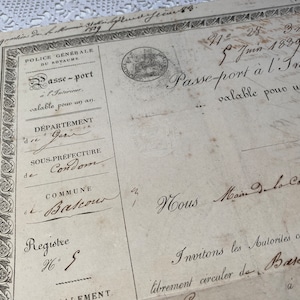 POLICE GÉNÉRALE
DU ROYAUME.
Passe-port
à l'Intérieur,
valable pour un an.
DÉPARTEMENT
du Gers
SOUS-PRÉFECTURE
de Condom
COMMUNE
de Bascous
Registre
N.º 5
SIGNALEMENT
5 Juin 183
Passe-port à l'In
valable pour u
Nous Maire de la Co
Invitons les Autorités c
librement circuler de Bas